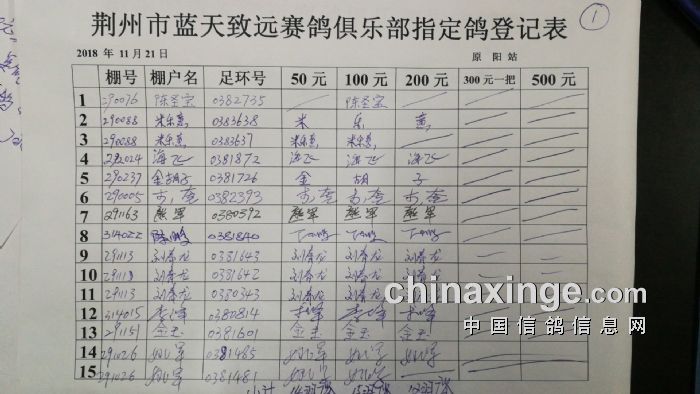 荆州市蓝天致远赛鸽俱乐部指定鸽登记表 1
2018 年 11月21日 原 阳 站
棚号 棚户名 足环号 50元 100元 200元 300元一把 500元
1 290076 陈圣宝 0382735 陈圣宝
2 290088 米乐熹 0383638 米 乐 熹
3 290088 米乐熹 0383637 米乐熹 米乐熹
4 292024 海飞 0381872 海飞 海飞 海飞
5 290237 金胡子 0381726 金 胡 子
6 290005 0382393
7 291163 熊军 0380392 熊军 熊军 熊军
8 314022 0381840
9 29113 刘春龙 0381643 刘春龙 刘春龙 刘春龙
10 29113 刘春龙 0381642 刘春龙 刘春龙 刘春龙
11 29113 刘春龙 0380343 刘春龙 刘春龙 刘春龙
12 314015 李峰 0380814 李峰 李峰 李峰
13 291151 金玉 0381601 金玉 金玉 金玉
14 291026 0381485
15 291026 0381481
小计
chinaxinge.com
中国信鸽信息网